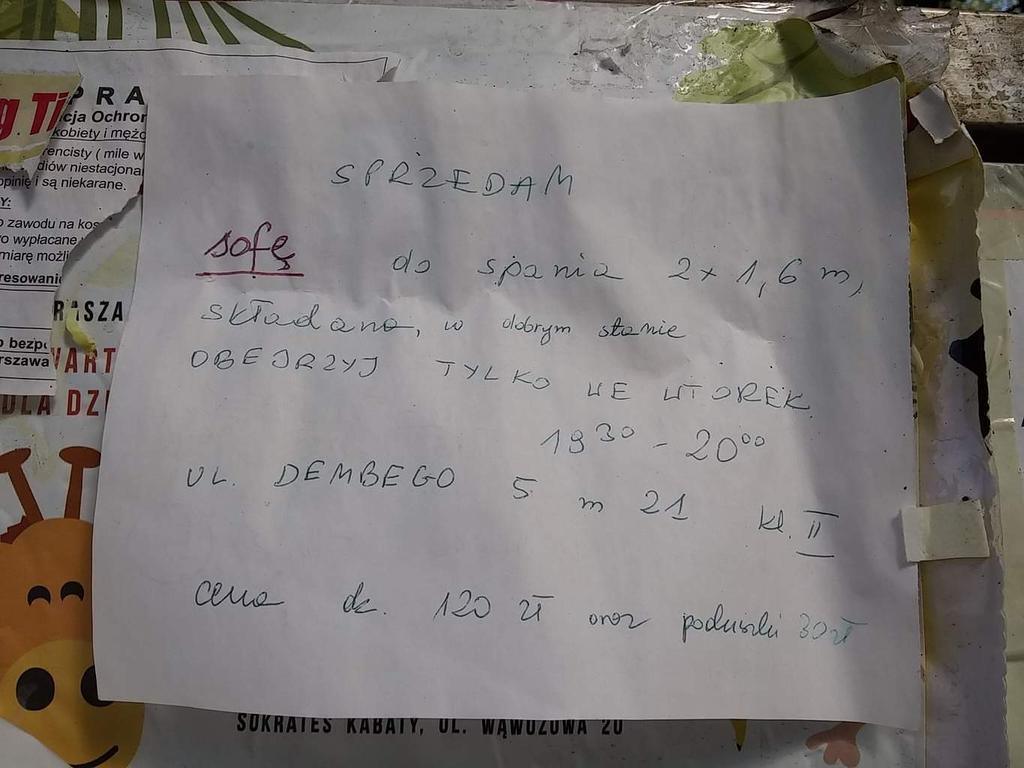 g Ti
PRA
cja Ochron
kobiety i mężc
rencisty ( mile w
diów niestacjona
opinię i są niekarane.
Y:
o zawodu na kos
o wypłacane
miarę możli
resowani
RASZA
o bezp
rszawa
WART
DLA DZI
SPRZEDAM
sofę do spania 2 x 1,6 m,
składana, w dobrym stanie
OBEJRZYJ TYLKO WE WTOREK.
19 30 - 20 00
UL. DEMBEGO 5 m 21 kl. II
cena dk. 120 zł oraz poduszki 30 zł
SOKRATES KABATY, UL. WĄWOZOWA 20